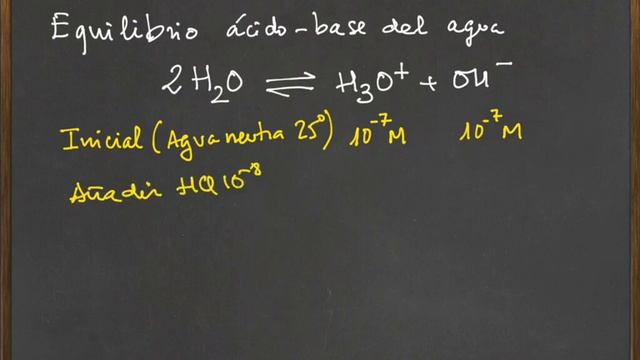 Equilibrio ácido-base del agua
2H₂O ⇌ H₃O⁺ + OH⁻
Inicial (Agua neutra 25°) 10⁻⁷M 10⁻⁷M
Añadir HCl 10⁻⁸